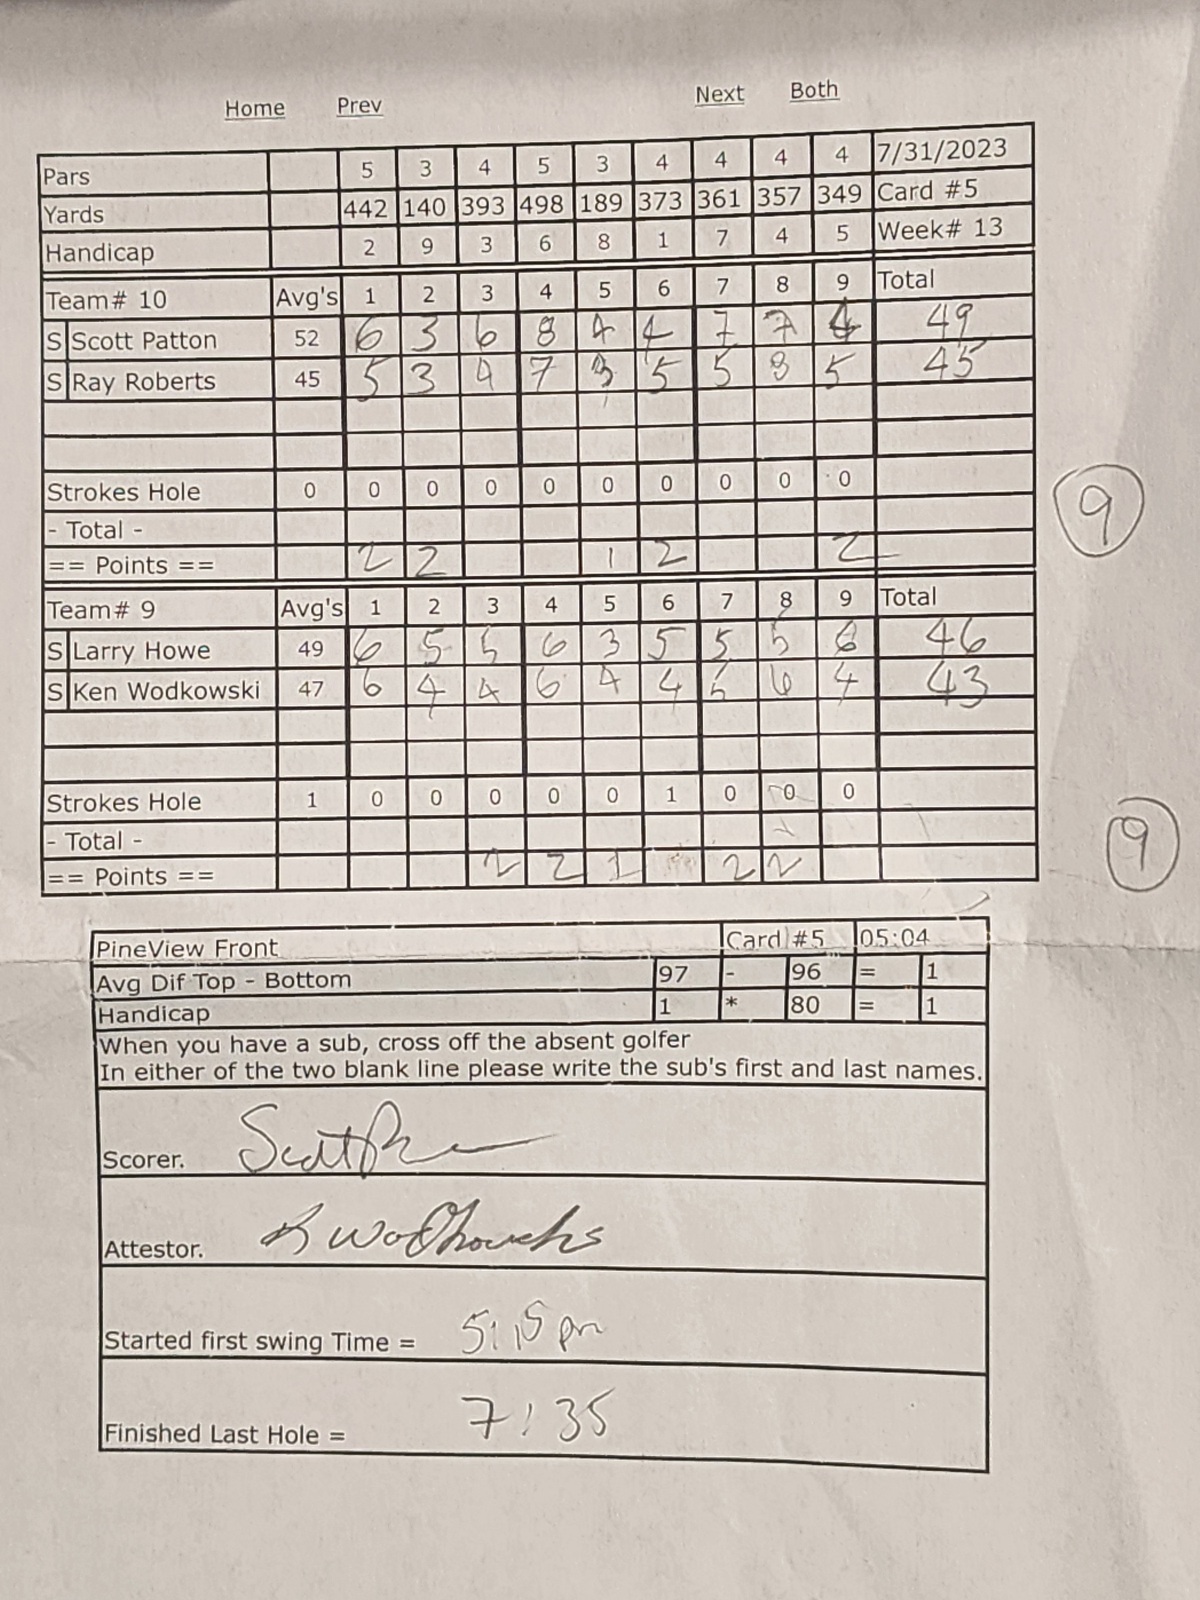 Home Prev Next Both
Pars 5 3 4 5 3 4 4 4 4 7/31/2023
Yards 442 140 393 498 189 373 361 357 349 Card #5
Handicap 2 9 3 6 8 1 7 4 5 Week# 13
Team# 10 Avg's 1 2 3 4 5 6 7 8 9 Total
S Scott Patton 52 6 3 6 8 4 4 7 7 4 49
S Ray Roberts 45 5 3 4 7 3 5 5 8 5 45
Strokes Hole 0 0 0 0 0 0 0 0 0 0
- Total -
9
== Points == 2 2 1 2 2
Team# 9 Avg's 1 2 3 4 5 6 7 8 9 Total
S Larry Howe 49 6 5 5 6 3 5 5 5 6 46
S Ken Wodkowski 47 6 4 4 6 4 4 5 6 4 43
Strokes Hole 1 0 0 0 0 0 1 0 0 0
- Total -
9
== Points == 2 2 1 2 2
PineView Front Card #5 05:04
Avg Dif Top - Bottom 97 - 96 = 1
Handicap 1 * 80 = 1
When you have a sub, cross off the absent golfer
In either of the two blank line please write the sub's first and last names.
Scorer. Scott
Attestor. K Wodkowski
Started first swing Time = 5:15 pm
Finished Last Hole = 7:35